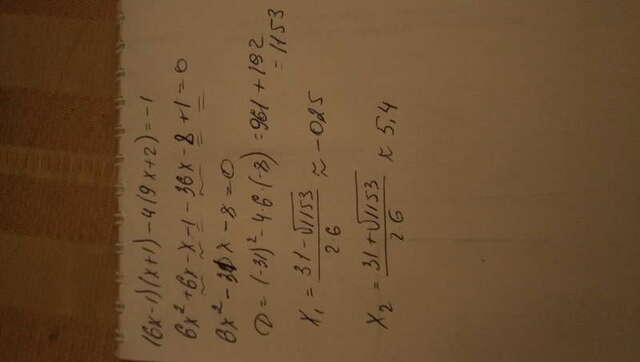 (6x-1)(x+1)-4(9x+2)=-1
6x²+6x-x-1-36x-8+1=0
6x²-31x-8=0
D=(-31)²-4·6·(-8)=961+192
=1153
x₁ = (31-√1153)/26 ≈ -0,25
x₂ = (31+√1153)/26 ≈ 5,4